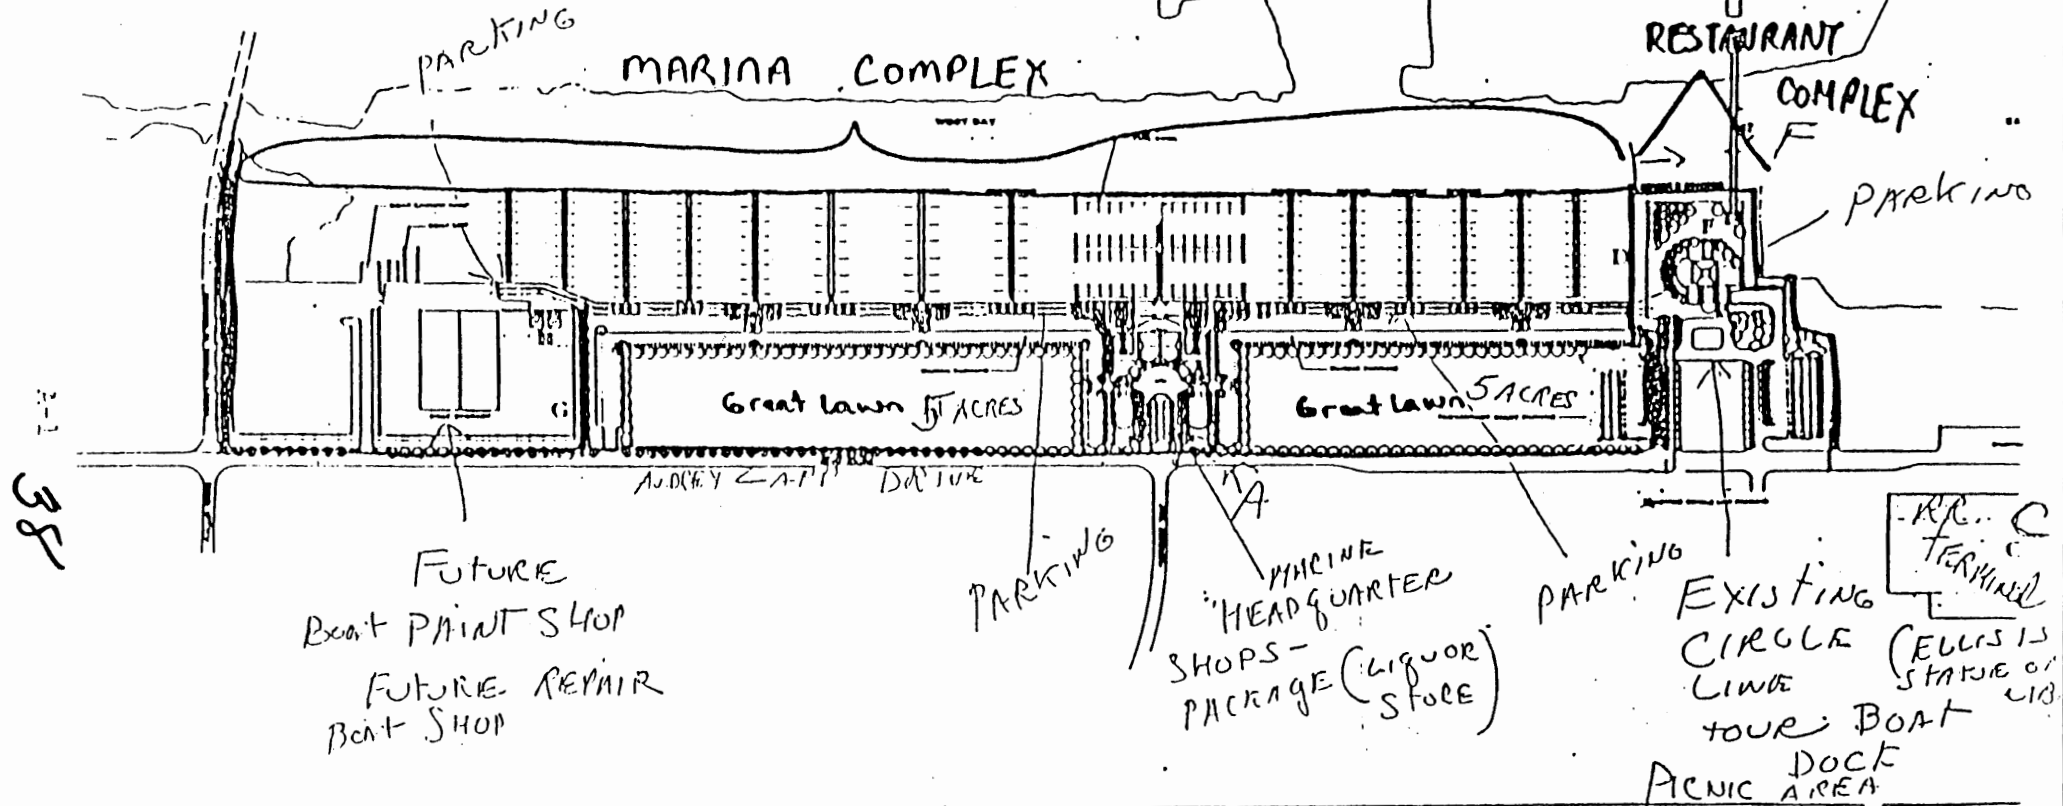 PARKING
MARINA COMPLEX
RESTAURANT
COMPLEX
F
WEST BAY
PARKING
F
D
G
Great Lawn 5 ACRES
Great Lawn 5 ACRES
AUDREY ZAPP DRIVE
A
38
R.R.
TERMINAL
C
FUTURE
Boat PAINT SHOP
FUTURE REPAIR
Boat SHOP
PARKING
MARINE
"HEADQUARTER
SHOPS-
PACKAGE (LIQUOR
STORE)
PARKING
EXISTING
CIRCLE
LINE
TOUR BOAT
DOCK
(ELLIS IS
STATUE OF
LIB
PICNIC AREA